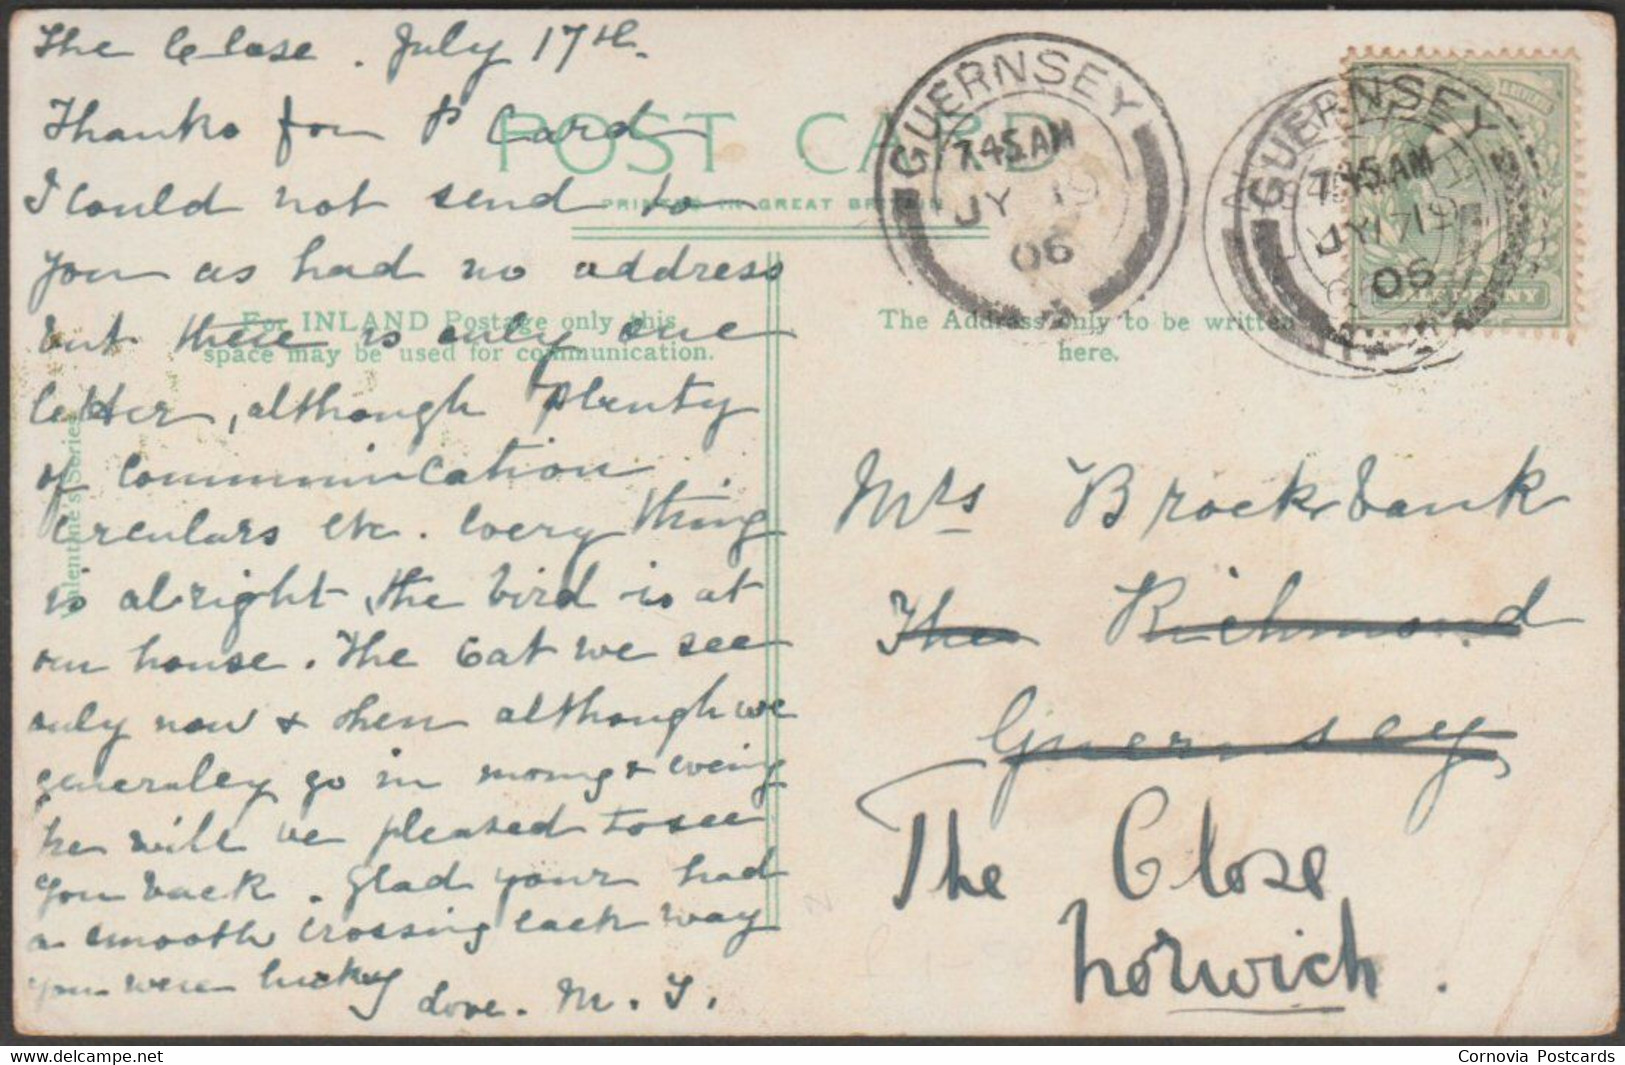 The Close. July 17th.
Thanks for P Card
I could not send to
you as had no address
but there is only one
letter, although plenty
of communication
circulars etc. Every thing
is alright, the bird is at
our house. The Cat we see
only now & then although we
generaley go in morng & eveing
he will be pleased to see
you back. Glad youz had
a smooth crossing each way
you were lucky
love. M. J.
POST CARD
PRINTED IN GREAT BRITAIN
For INLAND Postage only this
space may be used for communication.
The Address only to be written
here.
Valentine's Series
GUERNSEY
7.45 AM
JY 19
06
GUERNSEY
7.45 AM
JY 19
06
HALFPENNY
Mrs Brockbank
The Richmond
Guernsey
The Close
Norwich.
The Postcard Store
Cornovia Postcards